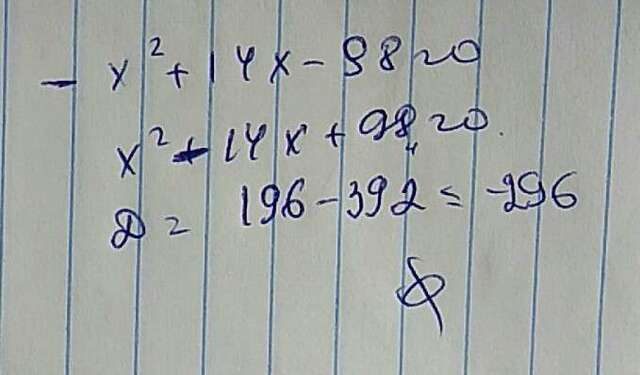 - x² + 14x - 98 = 0
x² - 14x + 98 = 0.
D = 196 - 392 = -296
∅